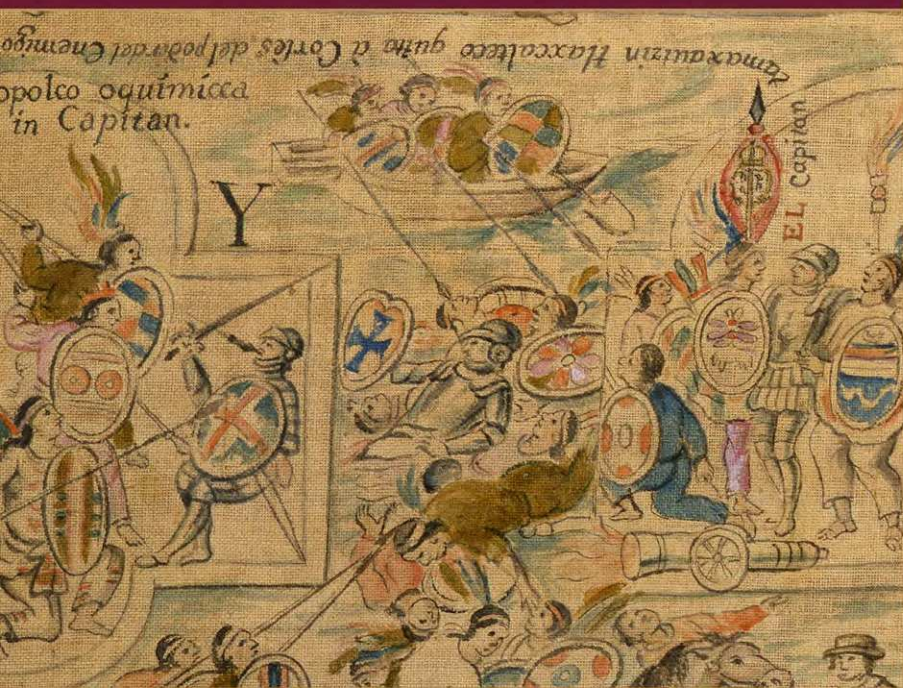 tlaxcalteco quito à Cortès del poder del Enemigo
opolco oquimicca
in Capitan.
Y
EL Capitan